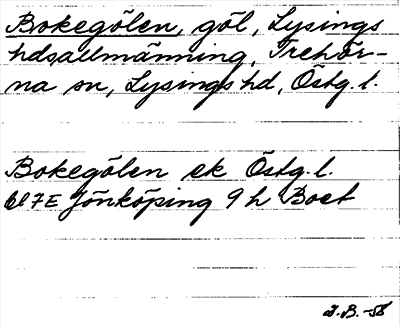 Bokegölen, göl, Lysings
hdsallmänning, Trehör-
na sn, Lysings hd, Östg. l.
Bokegölen ek Östg. l.
7E Jönköping 9 h Boet
J.B. -58